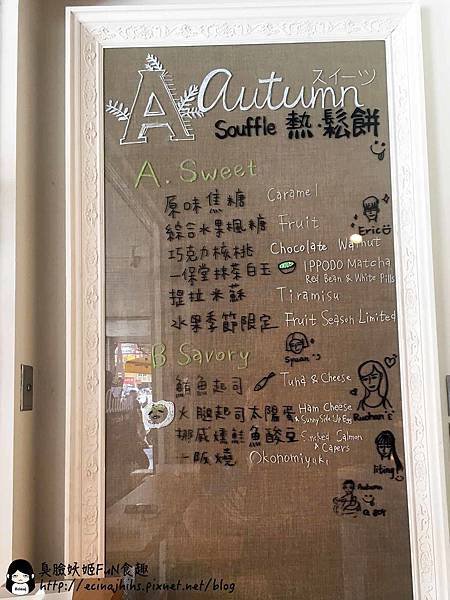 A autumn スイーツ
Souffle 熱·鬆餅
A. Sweet
原味焦糖 Caramel
綜合水果楓糖 Fruit
巧克力核桃 Chocolate Walnut
一保堂抹茶白玉 IPPODO Matcha
Red Bean & White Pills
提拉米蘇 Tiramisu
水果季節限定 Fruit Season Limited
B Savory
鮪魚起司 Tuna & Cheese
火腿起司太陽蛋 Ham Cheese
& Sunny Side Up Egg
挪威燻鮭魚酸豆 Smoked Salmon
& Capers
大阪燒 Okonomiyaki
Eric
Ruohan
iting
Autumn
臭臉妖姬FuN食趣
http://ecinajhins.pixnet.net/blog